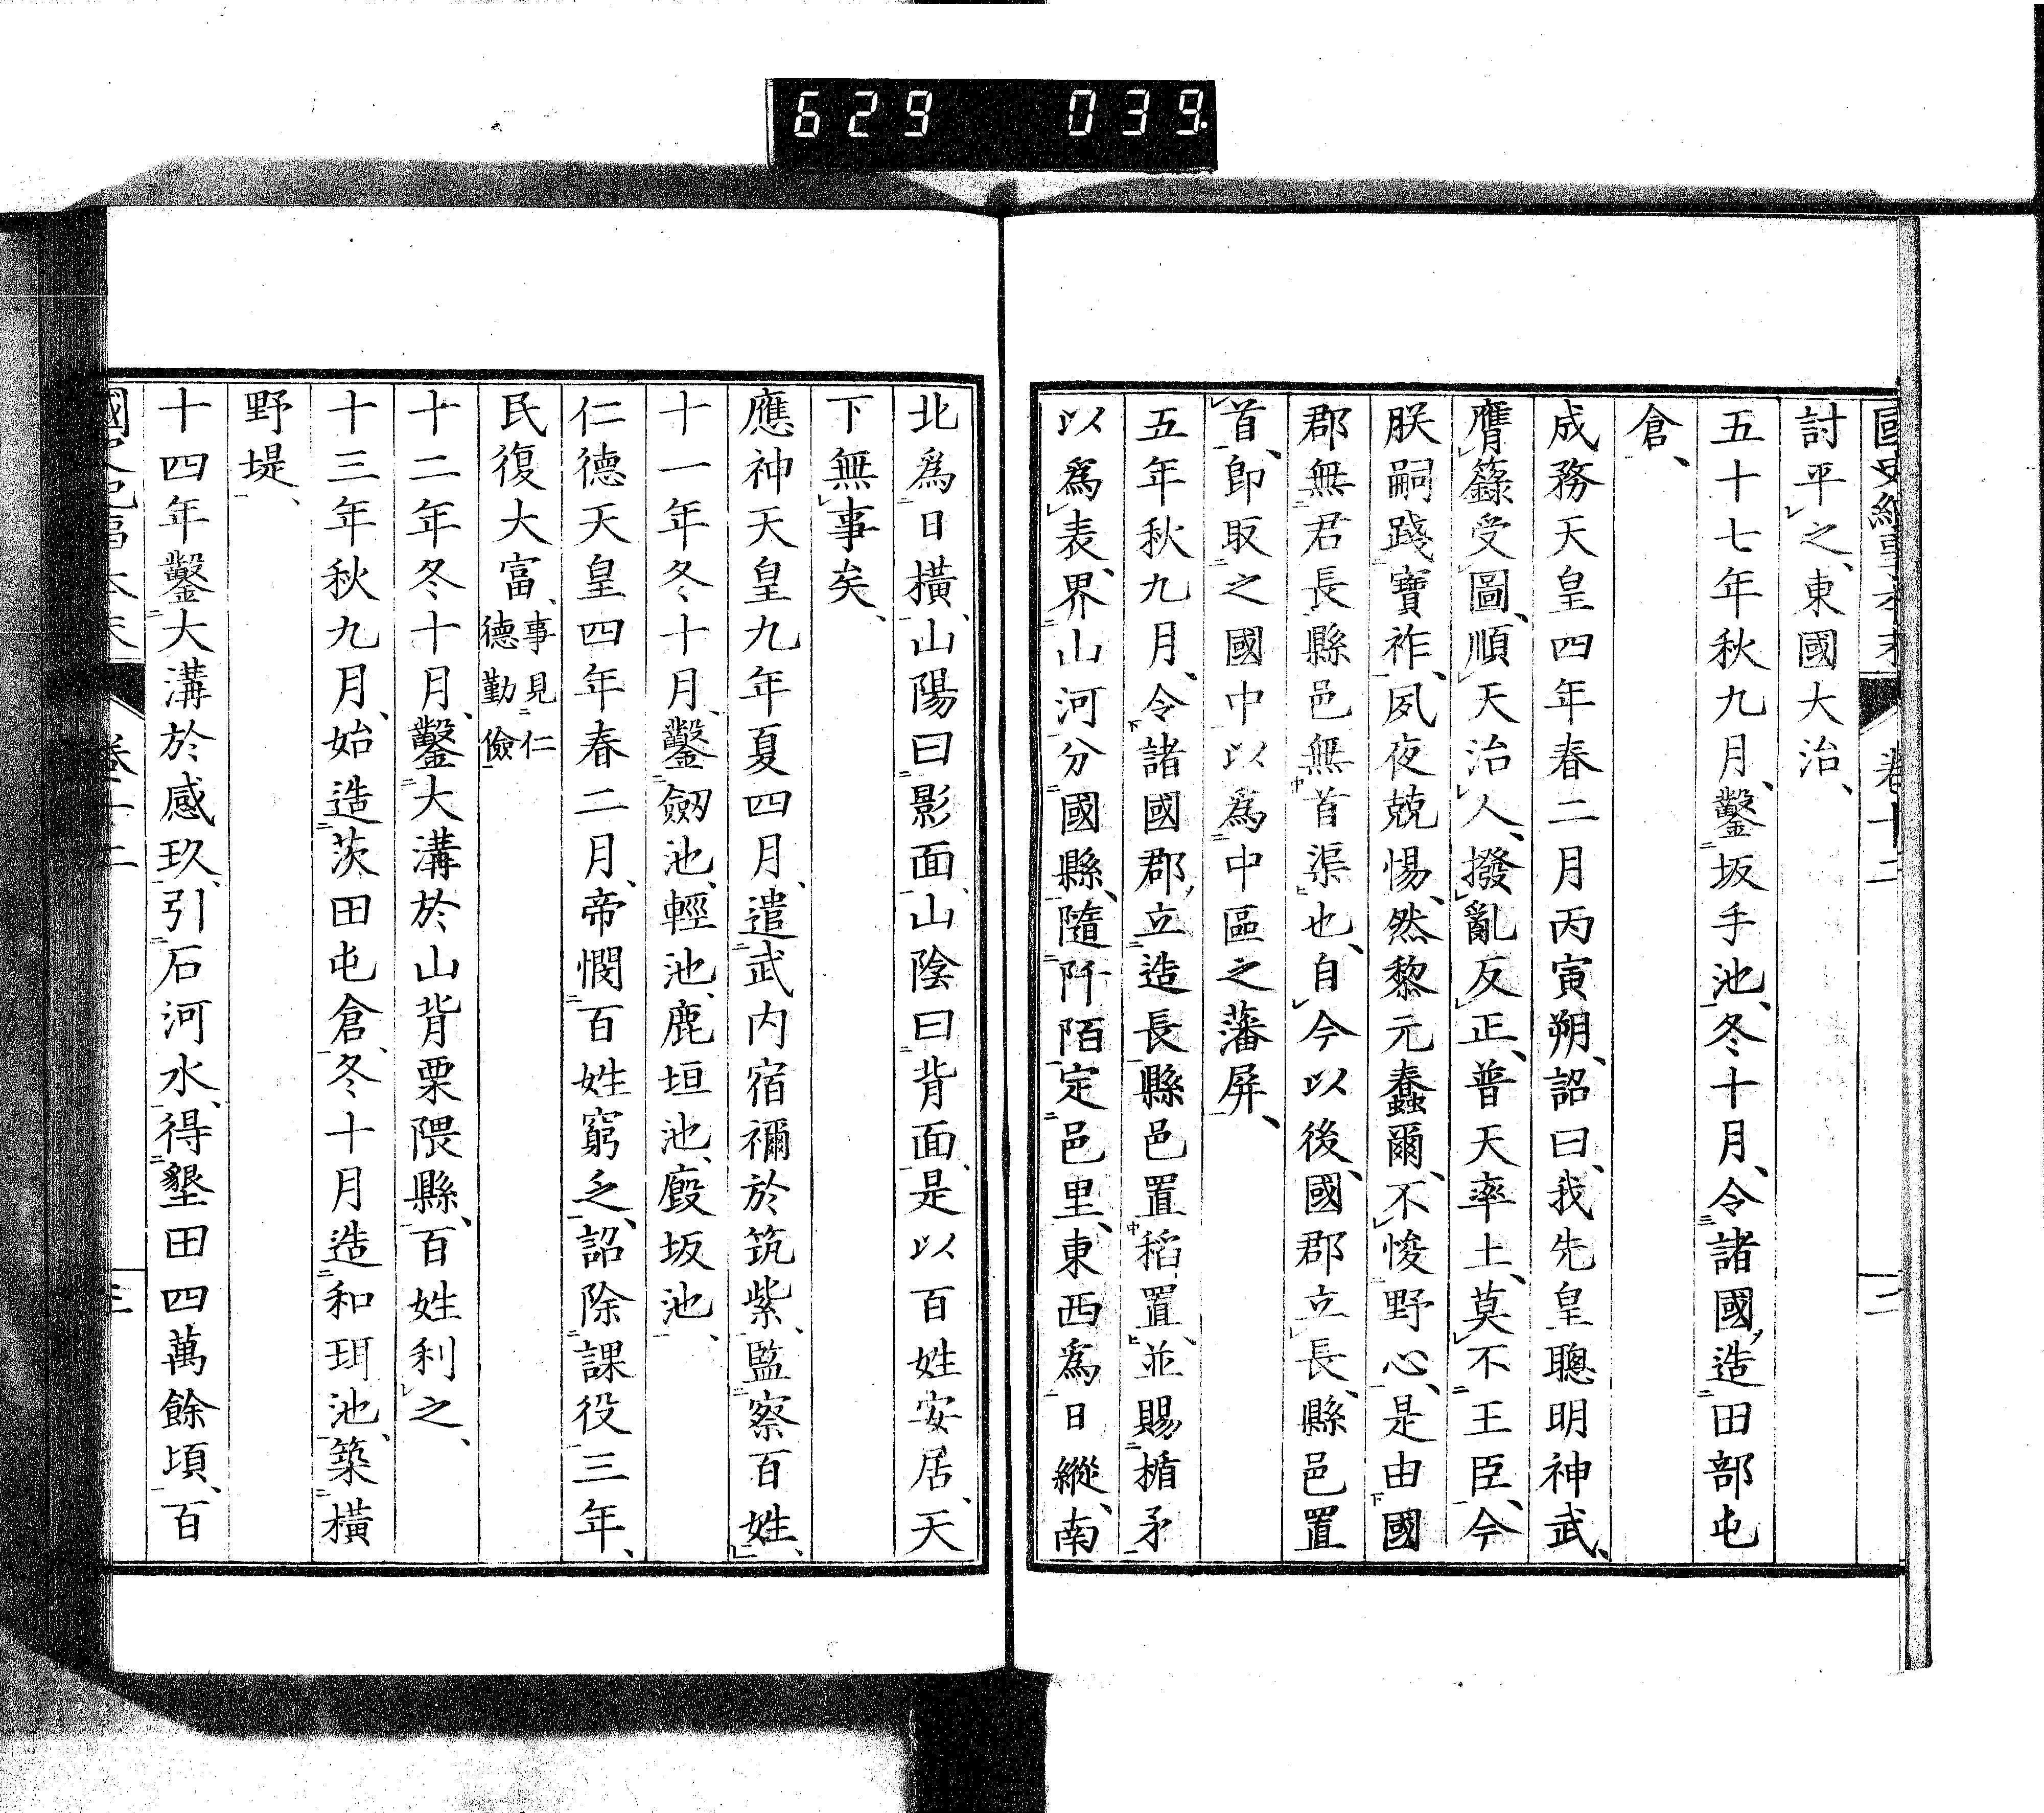 629 039
討平之、東國大治、
五十七年秋九月、鑿坂手池、冬十月、令諸國、造田部屯
倉、
成務天皇四年春二月丙寅朔、詔曰、我先皇聰明神武、
膺籙受圖、順天治人、撥亂反正、普天率土、莫不王臣、今
朕嗣踐寶祚、夙夜兢惕、然黎元蠢爾、不悛野心、是由國
郡無君長縣邑無首渠也、自今以後、國郡立長、縣邑置
首、卽取之國中以爲中區之藩屏、
五年秋九月、令諸國郡、立造長縣邑置稻置、並賜楯矛
以爲表、界山河分國縣、隨阡陌定邑里、東西爲日縱、南
北爲日橫、山陽曰影面、山陰曰背面、是以百姓安居、天
下無事矣、
應神天皇九年夏四月、遣武內宿禰於筑紫、監察百姓、
十一年冬十月、鑿劒池、輕池、鹿垣池、廄坂池、
仁德天皇四年春二月、帝憫百姓窮乏、詔除課役三年、
民復大富、事見仁德勤儉
十二年冬十月、鑿大溝於山背栗隈縣、百姓利之、
十三年秋九月、始造茨田屯倉、冬十月造和珥池、築橫
野堤、
十四年鑿大溝於感玖、引石河水、得墾田四萬餘頃、百